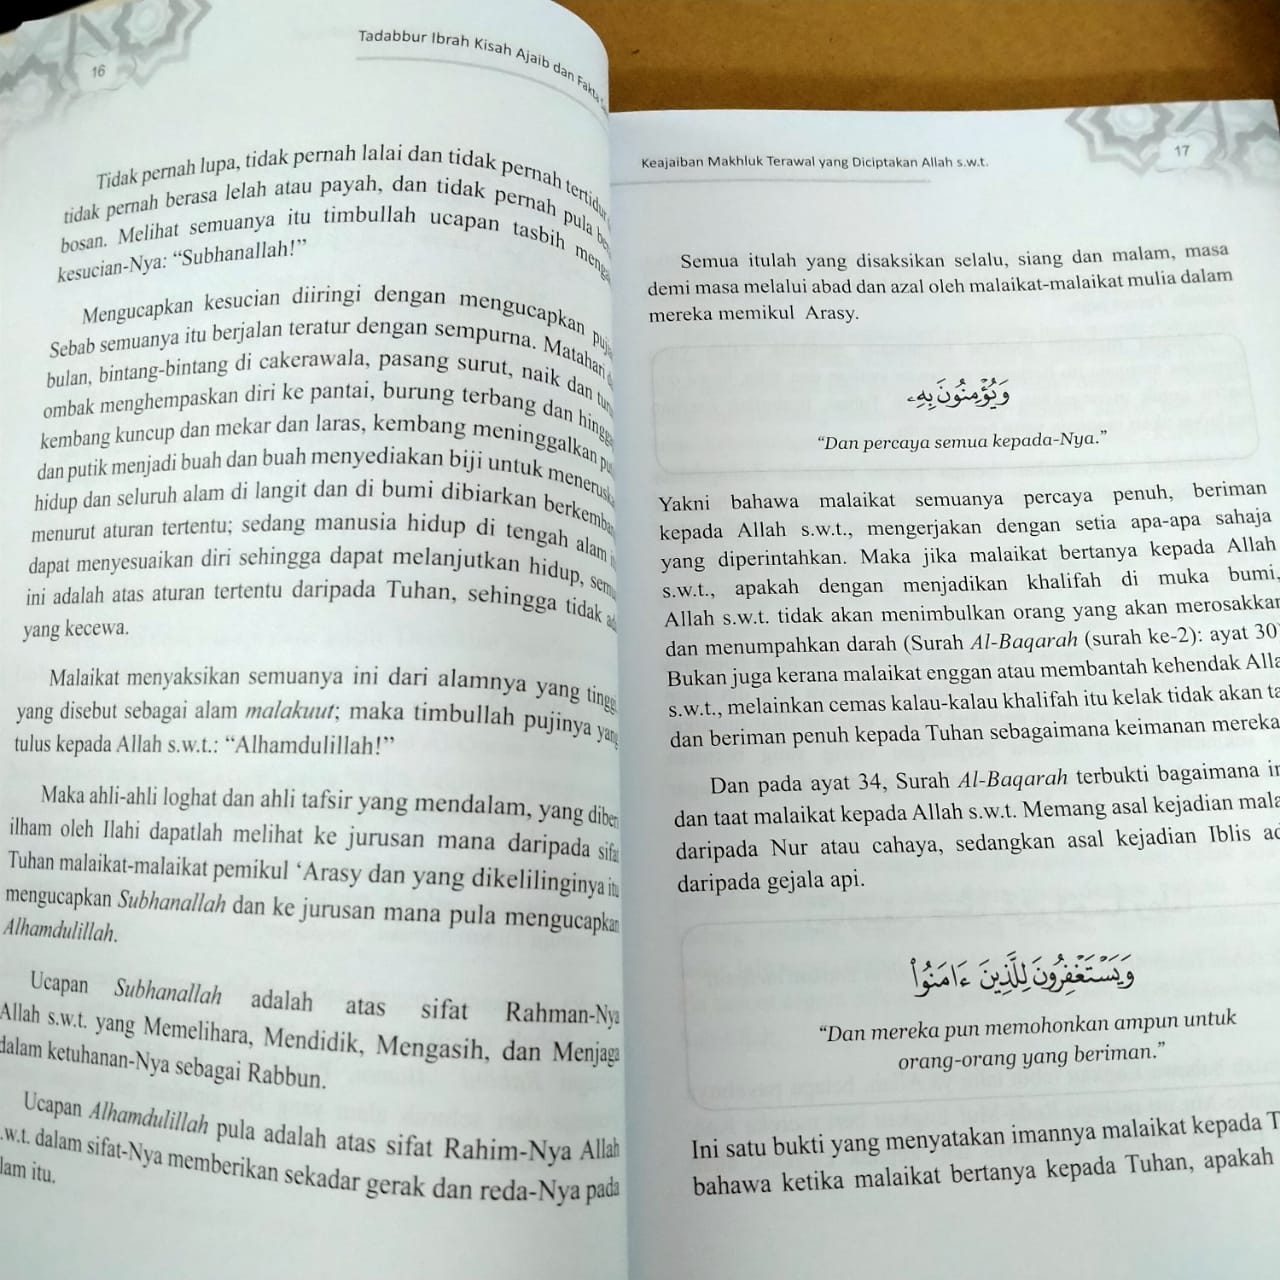 16
Tadabbur Ibrah Kisah Ajaib dan Fakta
Tidak pernah lupa, tidak pernah lalai dan tidak pernah tertidur
tidak pernah berasa lelah atau payah, dan tidak pernah pula
bosan. Melihat semuanya itu timbullah ucapan tasbih
kesucian-Nya: “Subhanallah!”
Mengucapkan kesucian diiringi dengan mengucapkan
Sebab semuanya itu berjalan teratur dengan sempurna. Matahari
bulan, bintang-bintang di cakerawala, pasang surut, naik dan
ombak menghempaskan diri ke pantai, burung terbang dan
kembang kuncup dan mekar dan laras, kembang meninggalkan
dan putik menjadi buah dan buah menyediakan biji untuk
hidup dan seluruh alam di langit dan di bumi dibiarkan
menurut aturan tertentu; sedang manusia hidup di tengah alam
dapat menyesuaikan diri sehingga dapat melanjutkan hidup,
ini adalah atas aturan tertentu daripada Tuhan, sehingga tidak
yang kecewa.
Malaikat menyaksikan semuanya ini dari alamnya yang
yang disebut sebagai alam malakuut; maka timbullah pujinya yang
tulus kepada Allah s.w.t.: “Alhamdulillah!”
Maka ahli-ahli loghat dan ahli tafsir yang mendalam, yang
ilham oleh Ilahi dapatlah melihat ke jurusan mana daripada
Tuhan malaikat-malaikat pemikul ‘Arasy dan yang dikelilinginya
mengucapkan Subhanallah dan ke jurusan mana pula mengucapkan
Alhamdulillah.
Ucapan Subhanallah adalah atas sifat Rahman-Nya
Allah s.w.t. yang Memelihara, Mendidik, Mengasih, dan Menjaga
dalam ketuhanan-Nya sebagai Rabbun.
Ucapan Alhamdulillah pula adalah atas sifat Rahim-Nya Allah
.w.t. dalam sifat-Nya memberikan sekadar gerak dan reda-Nya pada
lam itu.
Keajaiban Makhluk Terawal yang Diciptakan Allah s.w.t.
17
Semua itulah yang disaksikan selalu, siang dan malam, masa
demi masa melalui abad dan azal oleh malaikat-malaikat mulia dalam
mereka memikul Arasy.
وَيُؤْمِنُونَ بِهِۦ
“Dan percaya semua kepada-Nya.”
Yakni bahawa malaikat semuanya percaya penuh, beriman
kepada Allah s.w.t., mengerjakan dengan setia apa-apa sahaja
yang diperintahkan. Maka jika malaikat bertanya kepada Allah
s.w.t., apakah dengan menjadikan khalifah di muka bumi,
Allah s.w.t. tidak akan menimbulkan orang yang akan merosakkan
dan menumpahkan darah (Surah Al-Baqarah (surah ke-2): ayat 30)
Bukan juga kerana malaikat enggan atau membantah kehendak
s.w.t., melainkan cemas kalau-kalau khalifah itu kelak tidak akan
dan beriman penuh kepada Tuhan sebagaimana keimanan mereka
Dan pada ayat 34, Surah Al-Baqarah terbukti bagaimana
dan taat malaikat kepada Allah s.w.t. Memang asal kejadian
daripada Nur atau cahaya, sedangkan asal kejadian Iblis
daripada gejala api.
وَيَسْتَغْفِرُونَ لِلَّذِينَ ءَامَنُوا۟
“Dan mereka pun memohonkan ampun untuk
orang-orang yang beriman.”
Ini satu bukti yang menyatakan imannya malaikat kepada
bahawa ketika malaikat bertanya kepada Tuhan, apakah